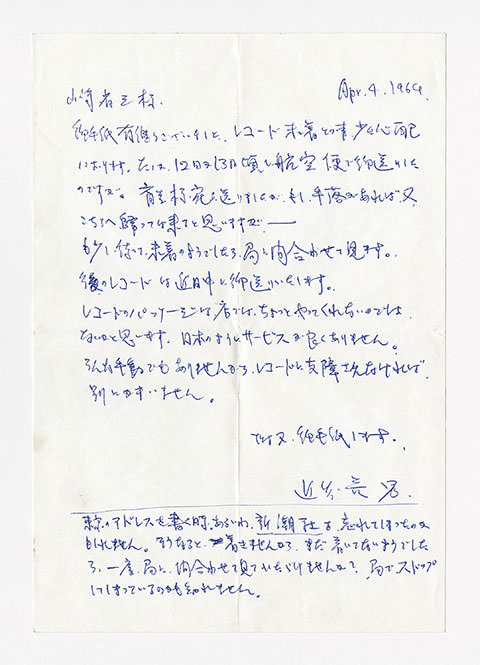 山崎省三様
Apr. 4. 1964.
御手紙有難うございました、レコード未着との事、少々心配
になります。たしか12日又13日頃に航空便で御送りした
のですが。齋藤様宛に送りましたが、もし手落があれば又
こちらへ帰っては来ると思いますが ―
もう少し待って未着のようでしたら局に問合わせて見ます。
後のレコードは近日中に御送りいたします。
レコードのパッケージは店では、ちょっとやってくれないのでは
ないかと思います。日本のようにサービスが良くありません。
そんな手数でもありませんから、レコードに支障さえなければ
別にかまいません。
では又、御手紙します。
東京のアドレスを書く時、あるいわ、新潮社を忘れてしまったのかも
しれません。そうなると着きませんから、まだ着いてないようでした
ら、一度局に問合わせて見ていただけませんか?局でストップ
してしまっているのかも知れません。